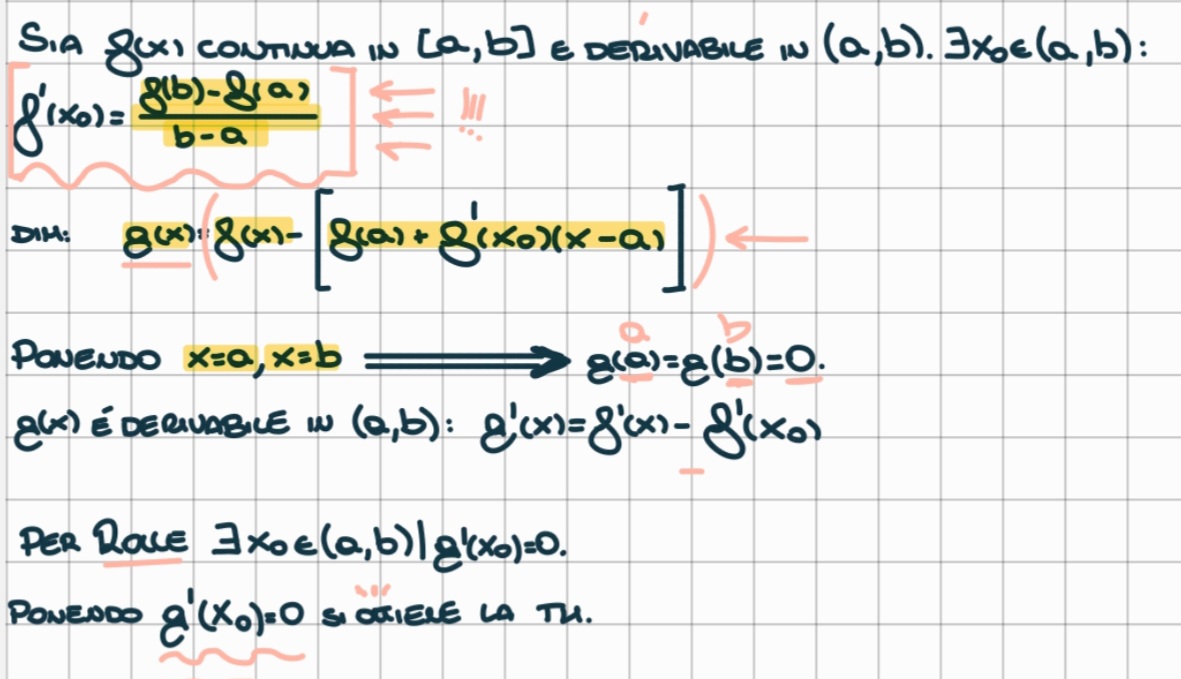 SIA f(x) CONTINUA IN [a,b] E DERIVABILE IN (a,b). ∃x₀∈(a,b):
f'(x₀)= f(b)-f(a) / b-a !!!
DIM: g(x)=(f(x)-[f(a)+f'(x₀)(x-a)])
PONENDO x=a, x=b ⟹ g(a)=g(b)=0.
a b
g(x) É DERIVABILE IN (a,b): g'(x)=f'(x)-f'(x₀)
PER ROLLE ∃x₀∈(a,b)|g'(x₀)=0.
PONENDO g'(x₀)=0 SI OTTIENE LA TH.